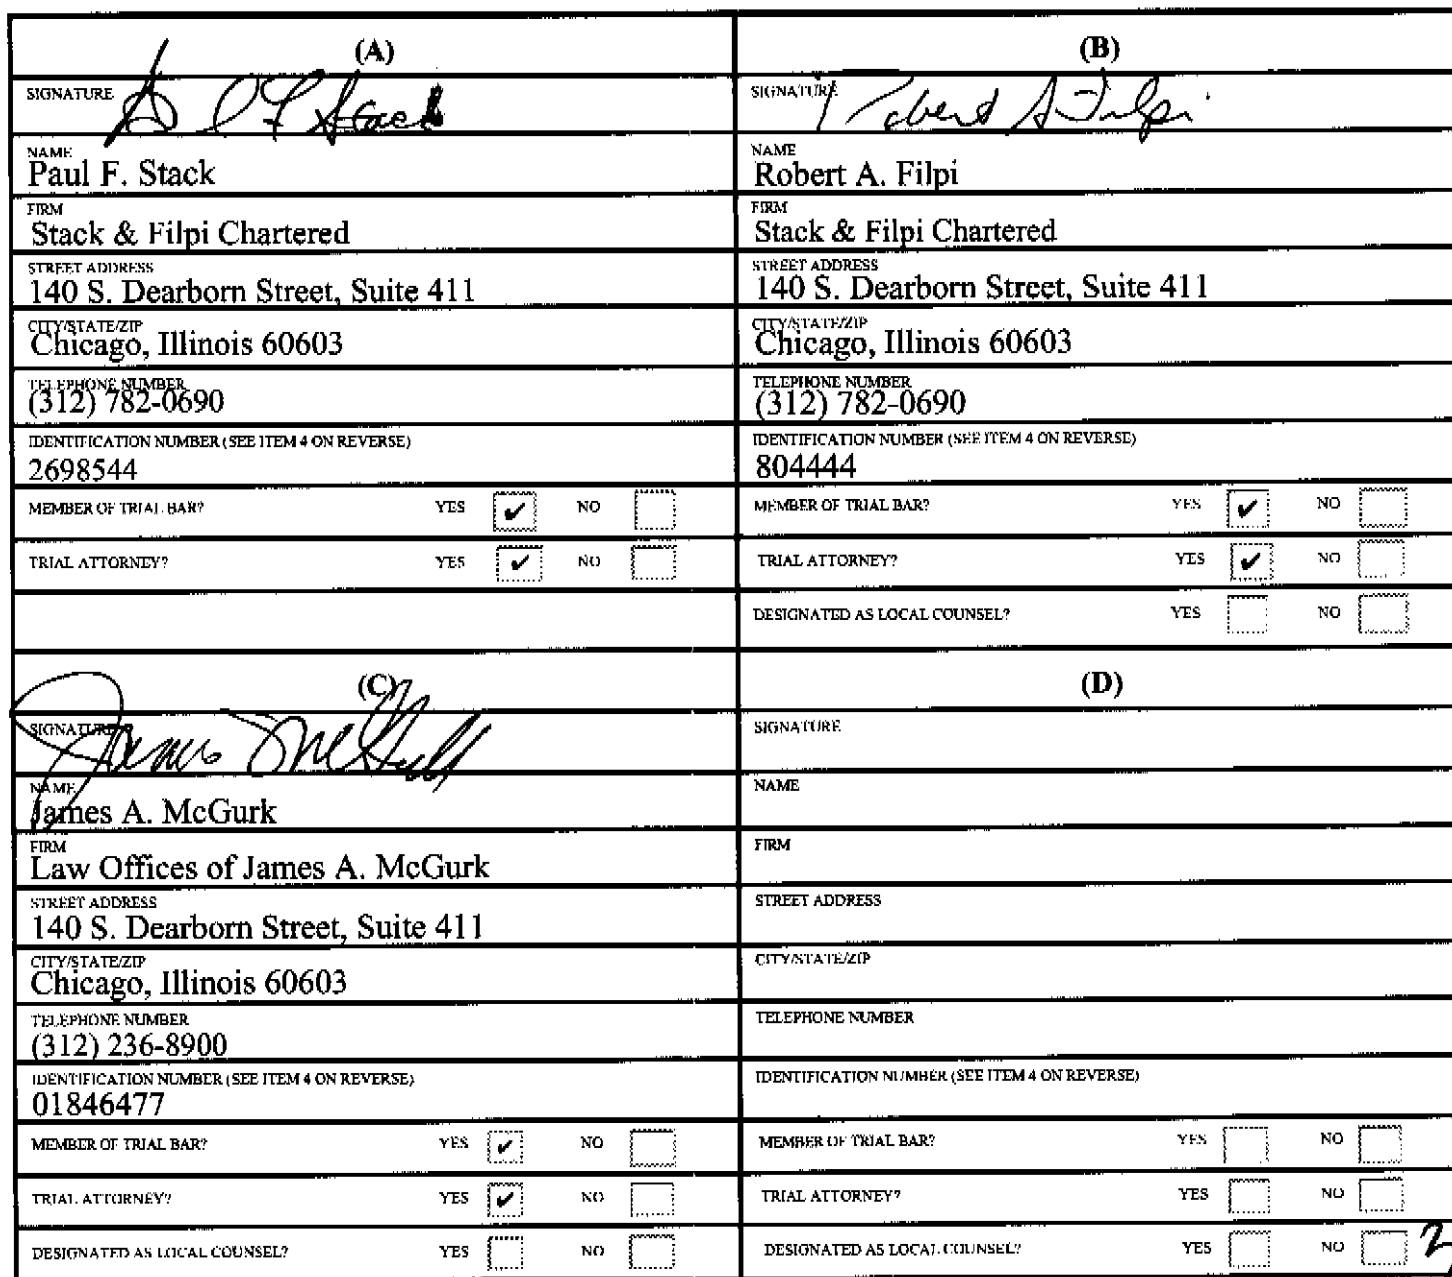 (A)
SIGNATURE P F Stack
NAME
Paul F. Stack
FIRM
Stack & Filpi Chartered
STREET ADDRESS
140 S. Dearborn Street, Suite 411
CITY/STATE/ZIP
Chicago, Illinois 60603
TELEPHONE NUMBER
(312) 782-0690
IDENTIFICATION NUMBER (SEE ITEM 4 ON REVERSE)
2698544
MEMBER OF TRIAL BAR? YES ✔ NO
TRIAL ATTORNEY? YES ✔ NO
(B)
SIGNATURE Robert A Filpi
NAME
Robert A. Filpi
FIRM
Stack & Filpi Chartered
STREET ADDRESS
140 S. Dearborn Street, Suite 411
CITY/STATE/ZIP
Chicago, Illinois 60603
TELEPHONE NUMBER
(312) 782-0690
IDENTIFICATION NUMBER (SEE ITEM 4 ON REVERSE)
804444
MEMBER OF TRIAL BAR? YES ✔ NO
TRIAL ATTORNEY? YES ✔ NO
DESIGNATED AS LOCAL COUNSEL? YES NO
(C)
SIGNATURE James McGurk
NAME
James A. McGurk
FIRM
Law Offices of James A. McGurk
STREET ADDRESS
140 S. Dearborn Street, Suite 411
CITY/STATE/ZIP
Chicago, Illinois 60603
TELEPHONE NUMBER
(312) 236-8900
IDENTIFICATION NUMBER (SEE ITEM 4 ON REVERSE)
01846477
MEMBER OF TRIAL BAR? YES ✔ NO
TRIAL ATTORNEY? YES ✔ NO
DESIGNATED AS LOCAL COUNSEL? YES NO
(D)
SIGNATURE
NAME
FIRM
STREET ADDRESS
CITY/STATE/ZIP
TELEPHONE NUMBER
IDENTIFICATION NUMBER (SEE ITEM 4 ON REVERSE)
MEMBER OF TRIAL BAR? YES NO
TRIAL ATTORNEY? YES NO
DESIGNATED AS LOCAL COUNSEL? YES NO
2